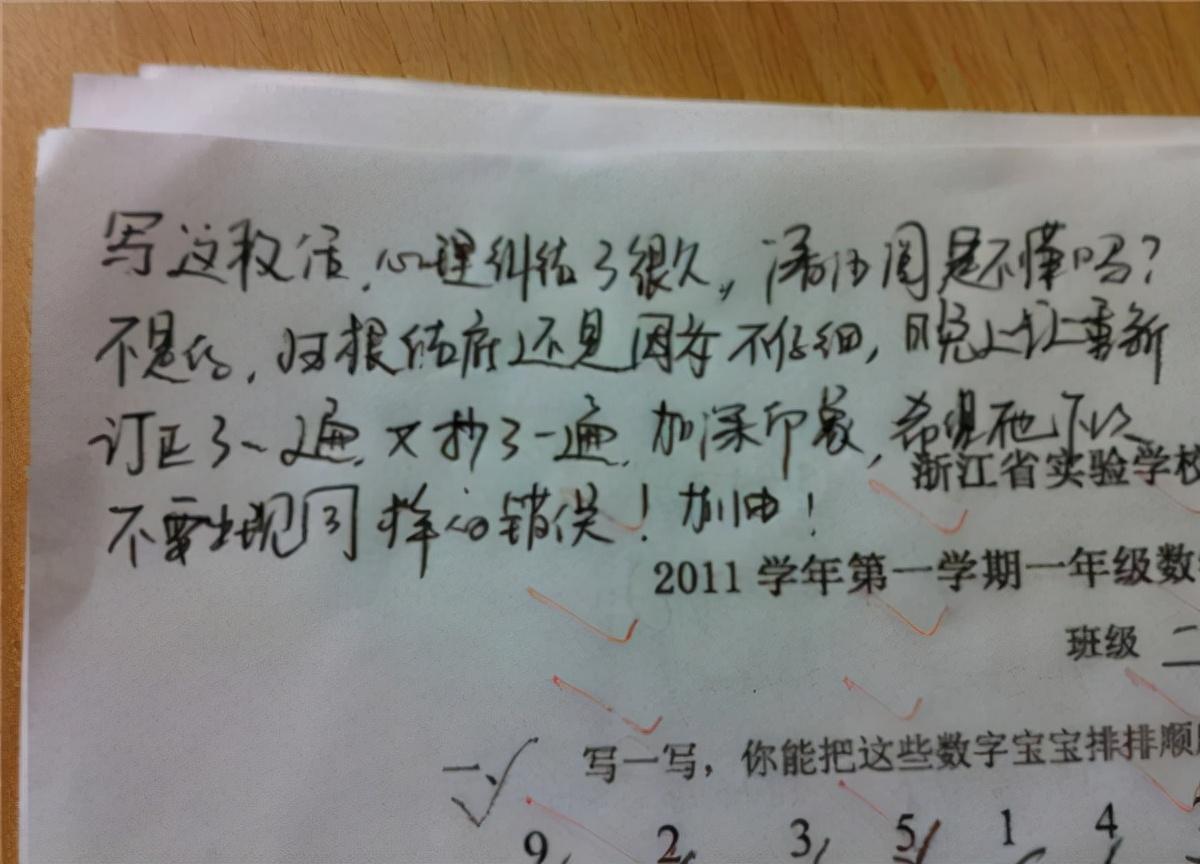 写这段话,心理纠结了很久,
是不懂吗?
不是的,归根结底还是因为不仔细,晚上让重新
订正了一遍,又抄了一遍,加深印象,希望他下次
不要出现同样的错误!加油!
浙江省实验学校
2011 学年第一学期一年级数
班级 二
一、 写一写,你能把这些数字宝宝排排顺
9 2 3 5 1 4